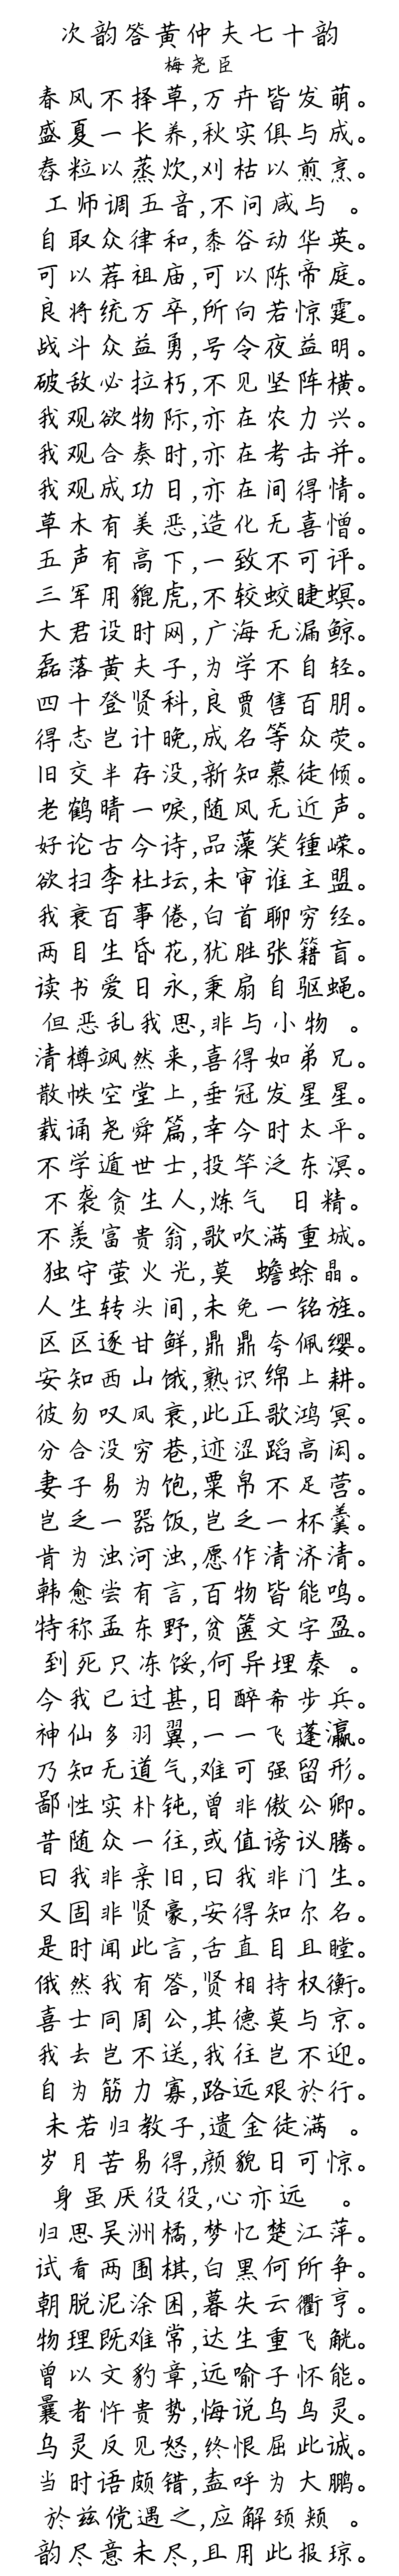 次韵答黄仲夫七十韵
梅尧臣
春风不择草,万卉皆发萌。
盛夏一长养,秋实俱与成。
舂粒以蒸炊,刈枯以煎烹。
工师调五音,不问咸与 。
自取众律和,黍谷动华英。
可以荐祖庙,可以陈帝庭。
良将统万卒,所向若惊霆。
战斗众益勇,号令夜益明。
破敌必拉朽,不见坚阵横。
我观欲物际,亦在农力兴。
我观合奏时,亦在考击并。
我观成功日,亦在间得情。
草木有美恶,造化无喜憎。
五声有高下,一致不可评。
三军用貔虎,不较蛟睫螟。
大君设时网,广海无漏鲸。
磊落黄夫子,为学不自轻。
四十登贤科,良贾售百朋。
得志岂计晚,成名等众荧。
旧交半存没,新知慕徒倾。
老鹤晴一唳,随风无近声。
好论古今诗,品藻笑锺嵘。
欲扫李杜坛,未审谁主盟。
我衰百事倦,白首聊穷经。
两目生昏花,犹胜张籍盲。
读书爱日永,秉扇自驱蝇。
但恶乱我思,非与小物 。
清樽飒然来,喜得如弟兄。
散帙空堂上,垂冠发星星。
载诵尧舜篇,幸今时太平。
不学遁世士,投竿泛东溟。
不袭贪生人,炼气 日精。
不羡富贵翁,歌吹满重城。
独守萤火光,莫 蟾蜍晶。
人生转头间,未免一铭旌。
区区逐甘鲜,鼎鼎夸佩缨。
安知西山饿,熟识绵上耕。
彼勿叹凤衰,此正歌鸿冥。
分合没穷巷,迹涩蹈高闳。
妻子易为饱,粟帛不足营。
岂乏一器饭,岂乏一杯羹。
肯为浊河浊,愿作清济清。
韩愈尝有言,百物皆能鸣。
特称孟东野,贫箧文字盈。
到死只冻馁,何异埋秦 。
今我已过甚,日醉希步兵。
神仙多羽翼,一一飞蓬瀛。
乃知无道气,难可强留形。
鄙性实朴钝,曾非傲公卿。
昔随众一往,或值谤议腾。
曰我非亲旧,曰我非门生。
又固非贤豪,安得知尔名。
是时闻此言,舌直目且瞠。
俄然我有答,贤相持权衡。
喜士同周公,其德莫与京。
我去岂不送,我往岂不迎。
自为筋力寡,路远艰於行。
未若归教子,遗金徒满 。
岁月苦易得,颜貌日可惊。
身虽厌役役,心亦远 。
归思吴洲橘,梦忆楚江萍。
试看两围棋,白黑何所争。
朝脱泥涂困,暮失云衢亨。
物理既难常,达生重飞觥。
曾以文豹章,远喻子怀能。
曩者忤贵势,悔说乌鸟灵。
乌灵反见怒,终恨屈此诚。
当时语颇错,盍呼为大鹏。
於兹傥遇之,应解颈颊 。
韵尽意未尽,且用此报琼。